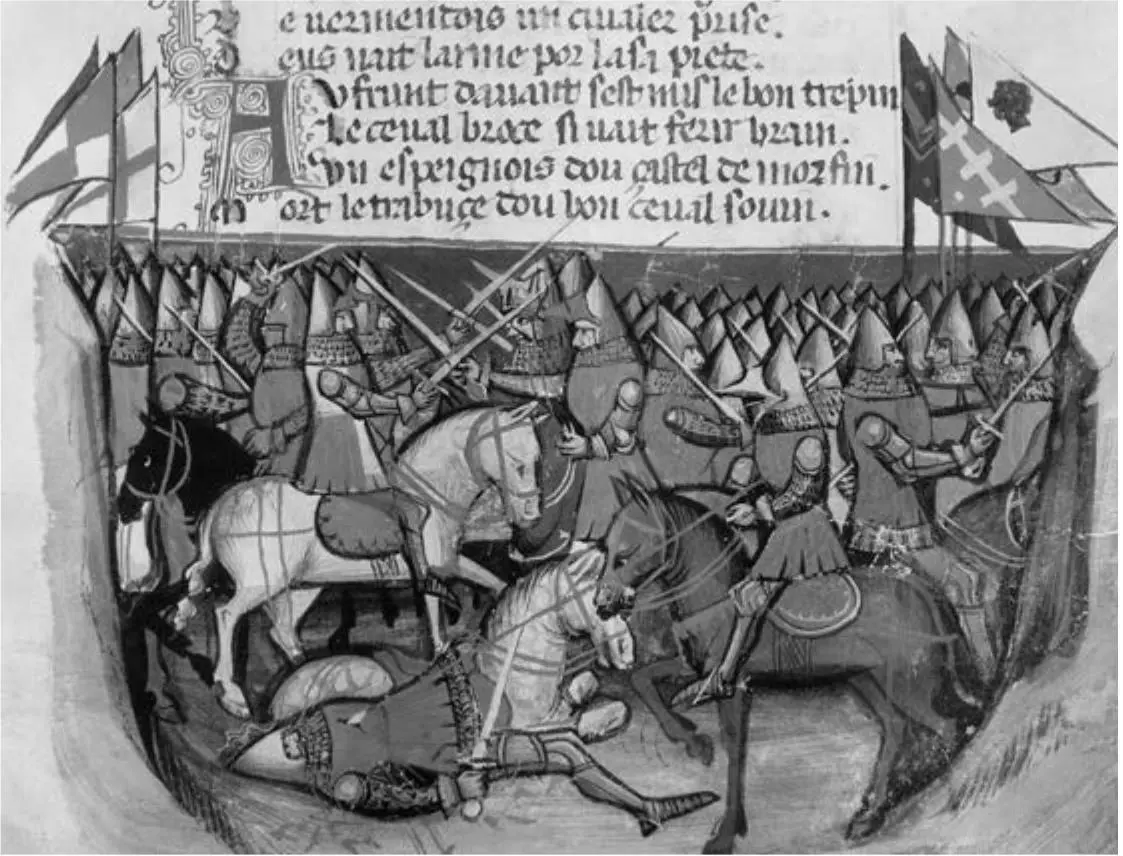 e uermentois un ciualer prise.
D eus uait larme por la sa piete.
A u frunt dauant sest mis le bon trepin
Le ceual broce si uait ferir brain.
Vn espeignois dou çastel de morfin.
M ort le trabuçe dou bon çeual souin.